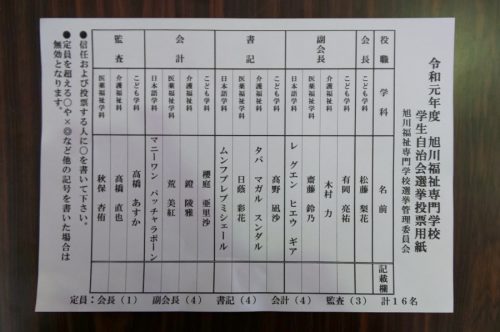 令和元年度 旭川福祉専門学校
学生自治会選挙投票用紙
旭川福祉専門学校選挙管理委員会
役職 学科 名前 記載欄
会長 こども学科 松藤 梨花
副会長 こども学科 有岡 亮祐
介護福祉学科 木村 力
医薬福祉学科 齋藤 鈴乃
日本語学科 レ グエン ヒエウ ギア
書記 こども学科 高野 凪沙
介護福祉学科 タパ マガル スンダル
医薬福祉学科 日蔭 彩花
日本語学科 ムンフプレブミシェール
会計 こども学科 櫻庭 亜里沙
介護福祉学科 鐙 陵雅
医薬福祉学科 荒 美紅
日本語学科 マニーワン パッチャラポーン
監査 こども学科 高橋 あすか
介護福祉学科 高橋 直也
医薬福祉学科 秋保 杏侑
●信任および投票する人に○を書いて下さい。
●定員を超える○や×◎など他の記号を書いた場合は
無効となります。
定員：会長（1） 副会長（4） 書記（4） 会計（4） 監査（3） 計16名